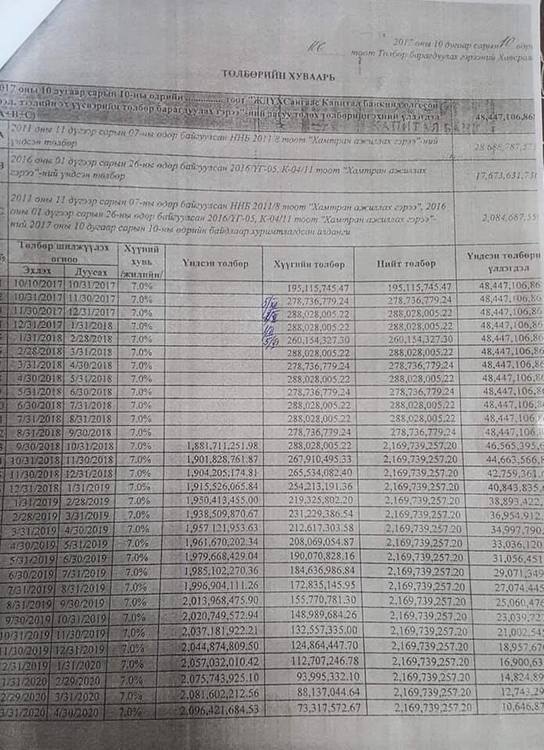 2017 оны 10 дугаар сарын 10 өдри
тоот Төлбөр барагдуулах гэрээний Хавсралт
ТӨЛБӨРИЙН ХУВААРЬ
2017 оны 10 дугаар сарын 10-ны өдрийн ............... тоот
гэрээ"-ний дагуу төлөх төлбөрийн эхний үлдэгдэл
(A+B+C) 48,447,106,86
2011 оны 11 дүгээр сарын 07-ны өдөр байгуулсан ННБ 2011/8 тоот "Хамтран ажиллах гэрээ"-ний
үндсэн төлбөр 28,688,787,57
2016 оны 01 дүгээр сарын 26-ны өдөр байгуулсан 2016/УГ-05, К-04/11 тоот "Хамтран ажиллах
гэрээ"-ний үндсэн төлбөр 17,673,631,73
2011 оны 11 дүгээр сарын 07-ны өдөр байгуулсан ННБ 2011/8 тоот "Хамтран ажиллах гэрээ", 2016
оны 01 дүгээр сарын 26-ны өдөр байгуулсан 2016/УГ-05, К-04/11 тоот "Хамтран ажиллах гэрээ"-
ний 2017 оны 10 дугаар сарын 10-ны өдрийн байдлаар хуримтлагдсан алданги 2,084,687,55
Төлбөр шилжүүлэх огноо Хүүний хувь /жилийн/ Үндсэн төлбөр Хүүгийн төлбөр Нийт төлбөр Үндсэн төлбөрийн үлдэгдэл
Эхлэх Дуусах
10/10/2017 10/31/2017 7.0% 195,115,745.47 195,115,745.47 48,447,106,86
10/31/2017 11/30/2017 7.0% 278,736,779.24 278,736,779.24 48,447,106,86
11/30/2017 12/31/2017 7.0% 288,028,005.22 288,028,005.22 48,447,106,86
12/31/2017 1/31/2018 7.0% 288,028,005.22 288,028,005.22 48,447,106,86
1/31/2018 2/28/2018 7.0% 260,154,327.30 260,154,327.30 48,447,106,86
2/28/2018 3/31/2018 7.0% 288,028,005.22 288,028,005.22 48,447,106,86
3/31/2018 4/30/2018 7.0% 278,736,779.24 278,736,779.24 48,447,106,86
4/30/2018 5/31/2018 7.0% 288,028,005.22 288,028,005.22 48,447,106,86
5/31/2018 6/30/2018 7.0% 278,736,779.24 278,736,779.24 48,447,106,8
6/30/2018 7/31/2018 7.0% 288,028,005.22 288,028,005.22 48,447,106,8
7/31/2018 8/31/2018 7.0% 288,028,005.22 288,028,005.22 48,447,106,8
8/31/2018 9/30/2018 7.0% 278,736,779.24 278,736,779.24 48,447,106,8
9/30/2018 10/31/2018 7.0% 1,881,711,251.98 288,028,005.22 2,169,739,257.20 46,565,395,6
10/31/2018 11/30/2018 7.0% 1,901,828,761.87 267,910,495.33 2,169,739,257.20 44,663,566,8
11/30/2018 12/31/2018 7.0% 1,904,205,174.81 265,534,082.40 2,169,739,257.20 42,759,361,6
12/31/2018 1/31/2019 7.0% 1,915,526,065.84 254,213,191.36 2,169,739,257.20 40,843,835,
1/31/2019 2/28/2019 7.0% 1,950,413,455.00 219,325,802.20 2,169,739,257.20 38,893,422,
2/28/2019 3/31/2019 7.0% 1,938,509,870.67 231,229,386.54 2,169,739,257.20 36,954,912,
3/31/2019 4/30/2019 7.0% 1,957,121,953.63 212,617,303.58 2,169,739,257.20 34,997,790,
4/30/2019 5/31/2019 7.0% 1,961,670,202.34 208,069,054.87 2,169,739,257.20 33,036,120
5/31/2019 6/30/2019 7.0% 1,979,668,429.04 190,070,828.16 2,169,739,257.20 31,056,451
6/30/2019 7/31/2019 7.0% 1,985,102,270.36 184,636,986.84 2,169,739,257.20 29,071,349
7/31/2019 8/31/2019 7.0% 1,996,904,111.26 172,835,145.95 2,169,739,257.20 27,074,445
8/31/2019 9/30/2019 7.0% 2,013,968,475.90 155,770,781.30 2,169,739,257.20 25,060,476
9/30/2019 10/31/2019 7.0% 2,020,749,572.94 148,989,684.26 2,169,739,257.20 23,039,727
10/31/2019 11/30/2019 7.0% 2,037,181,922.21 132,557,335.00 2,169,739,257.20 21,002,545
11/30/2019 12/31/2019 7.0% 2,044,874,809.50 124,864,447.70 2,169,739,257.20 18,957,670
12/31/2019 1/31/2020 7.0% 2,057,032,010.42 112,707,246.78 2,169,739,257.20 16,900,63
1/31/2020 2/29/2020 7.0% 2,075,743,925.10 93,995,332.10 2,169,739,257.20 14,824,89
2/29/2020 3/31/2020 7.0% 2,081,602,212.56 88,137,044.64 2,169,739,257.20 12,743,29
3/31/2020 4/30/2020 7.0% 2,096,421,684.53 73,317,572.67 2,169,739,257.20 10,646,87